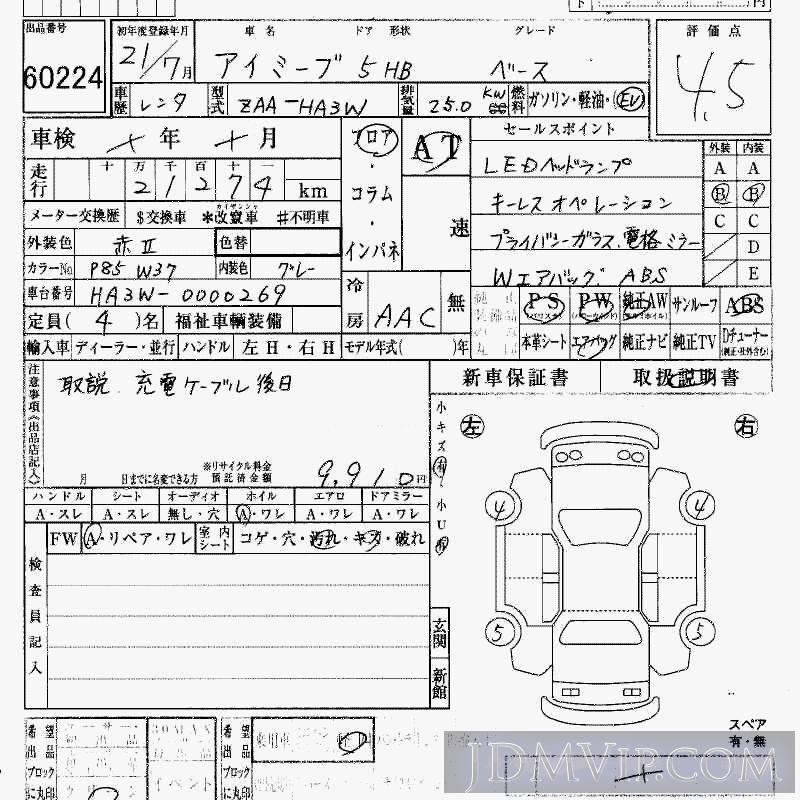 出品番号 初年度登録年月 車名 ドア 形状 グレード 評価点
60224 21/7月 アイミーブ 5HB ベース 4.5
車歴 レンタ 型式 ZAA-HA3W 排気量 25.0 KW 燃料 ガソリン・軽油・(EV)
車検 年 月 フロア AT セールスポイント 外装 内装
走行 十 万 千 百 十 一 LEDヘッドランプ A A
2 1 2 7 4 km コラム キーレスオペレーション B B
メーター交換歴 $交換車 *改竄車 #不明車 C C
外装色 赤II 色替 インパネ 速 プライバシーガラス、電格ミラー D
カラーNo P85 W37 内装色 グレー Wエアバッグ ABS E
車台番号 HA3W-0000269 冷房 AAC 無 PS PW 純正AW サンルーフ ABS
定員(4)名 福祉車輌装備 本革シート エアバッグ 純正ナビ 純正TV Dチューナー
輸入車 ディーラー・並行 ハンドル 左H・右H モデル年式( )年
注意事項(出品店記入) 取説.充電ケーブル後日 新車保証書 取扱説明書
小キズ有 小U有 左 右
月 日までに名変できる方 ※リサイクル料金預託済金額 9,910円
ハンドル シート オーディオ ホイル エアロ ドアミラー
A・スレ A・スレ 無し・穴 A・ワレ A・ワレ A・ワレ 4 4
FW A・リペア・ワレ 室内シート コゲ・穴・汚れ・キズ・破れ
検査員記入
5 5
玄関
新館
スペア
有・無
希望出品ブロックに丸印 イベント 希望出品ブロックに丸印 乗用車 軽
JDMVIP.COM